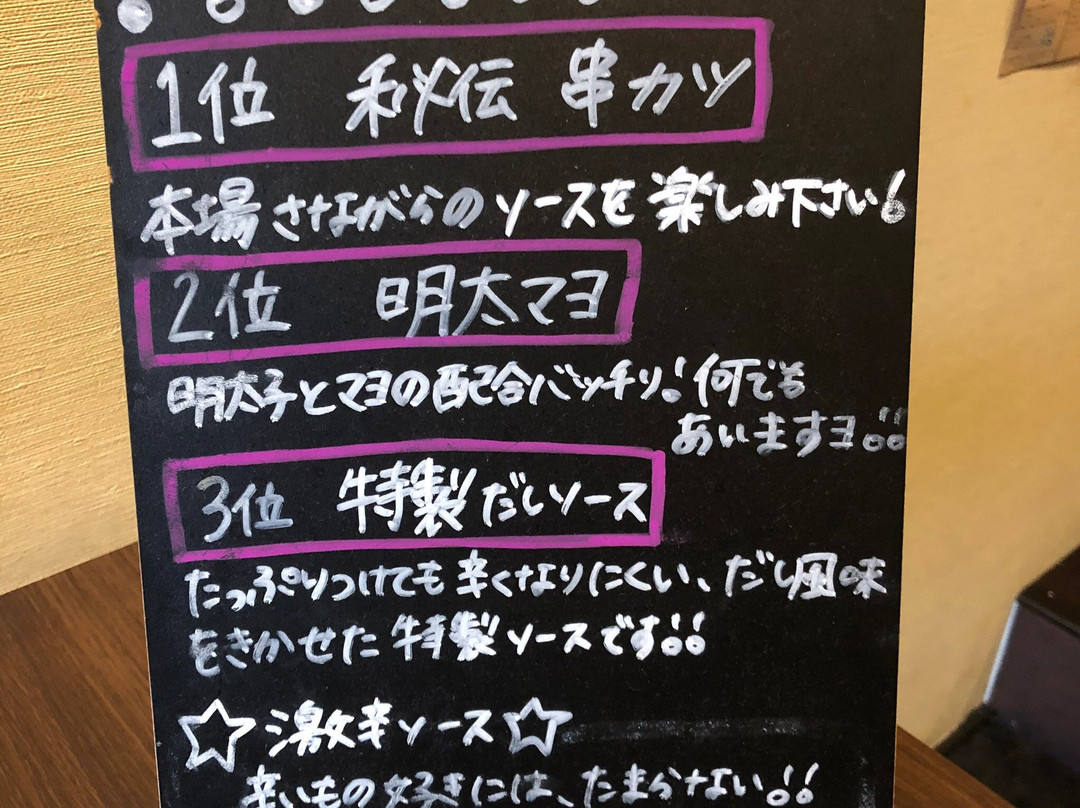 1位 秘伝 串カツ
本場さながらのソースを楽しみ下さい!
2位 明太マヨ
明太子とマヨの配合バッチリ!何でも
あいますヨ!!
3位 特製だしソース
たっぷりつけても辛くなりにくい、だし風味
をきかせた特製ソースです!!
☆激辛ソース☆
辛いもの好きには、たまらない!!